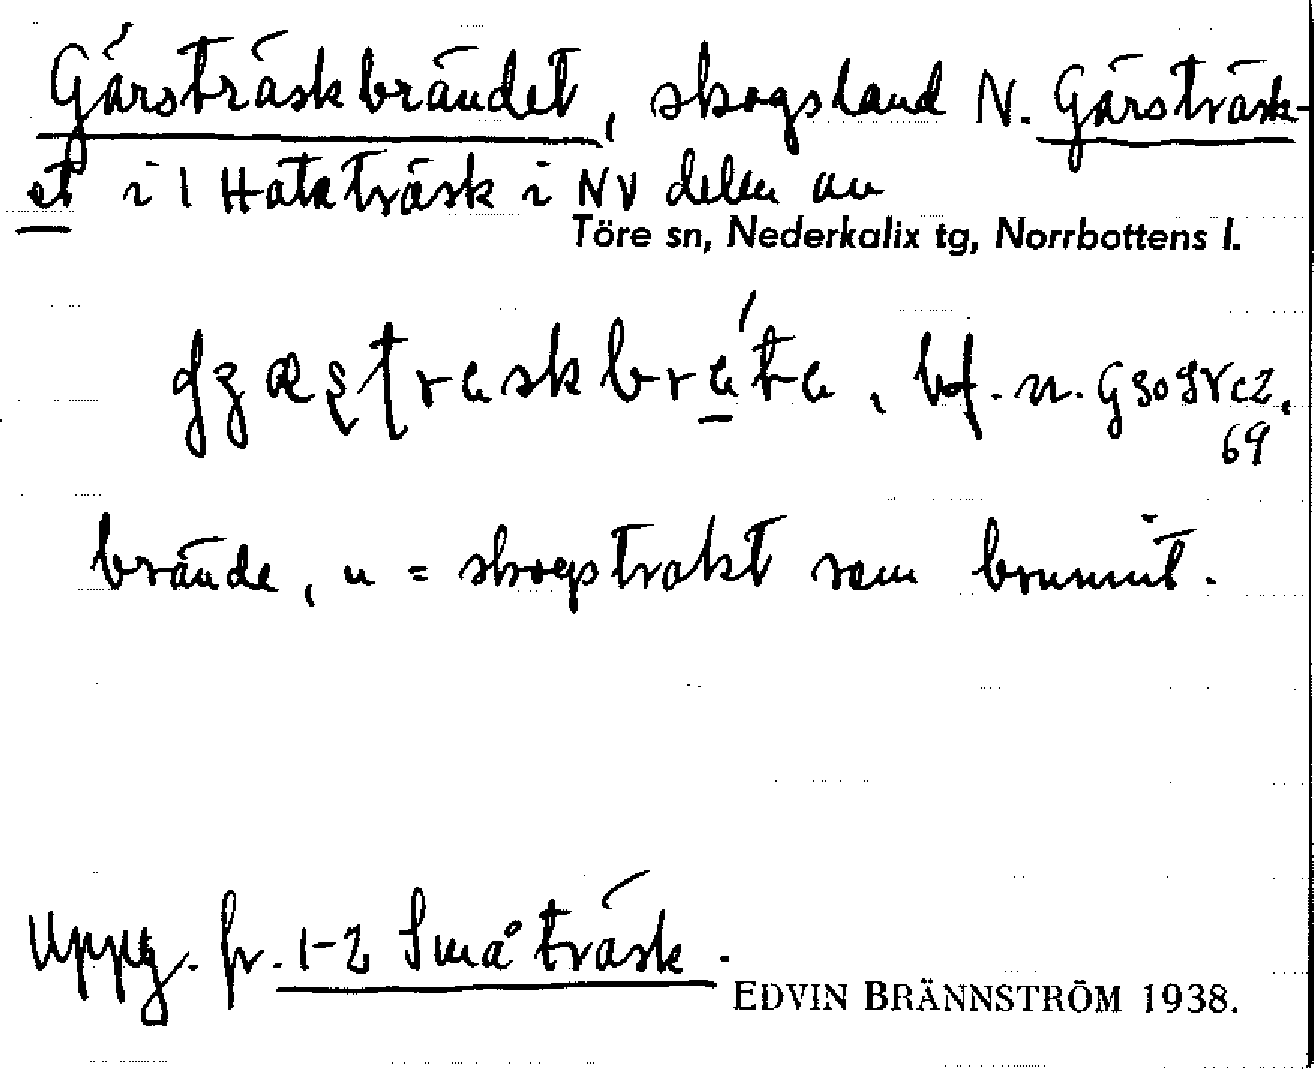 Gärsträskbrändet, skogsland N. Gärsträsk-
et i 1 Hataträsk i NV delen av
Töre sn, Nederkalix tg, Norrbottens l.
bf. n.
69
brände, n = skogstrakt som brunnit.
Uppg. fr. 1-2 Småträsk.
EDVIN BRÄNNSTRÖM 1938.